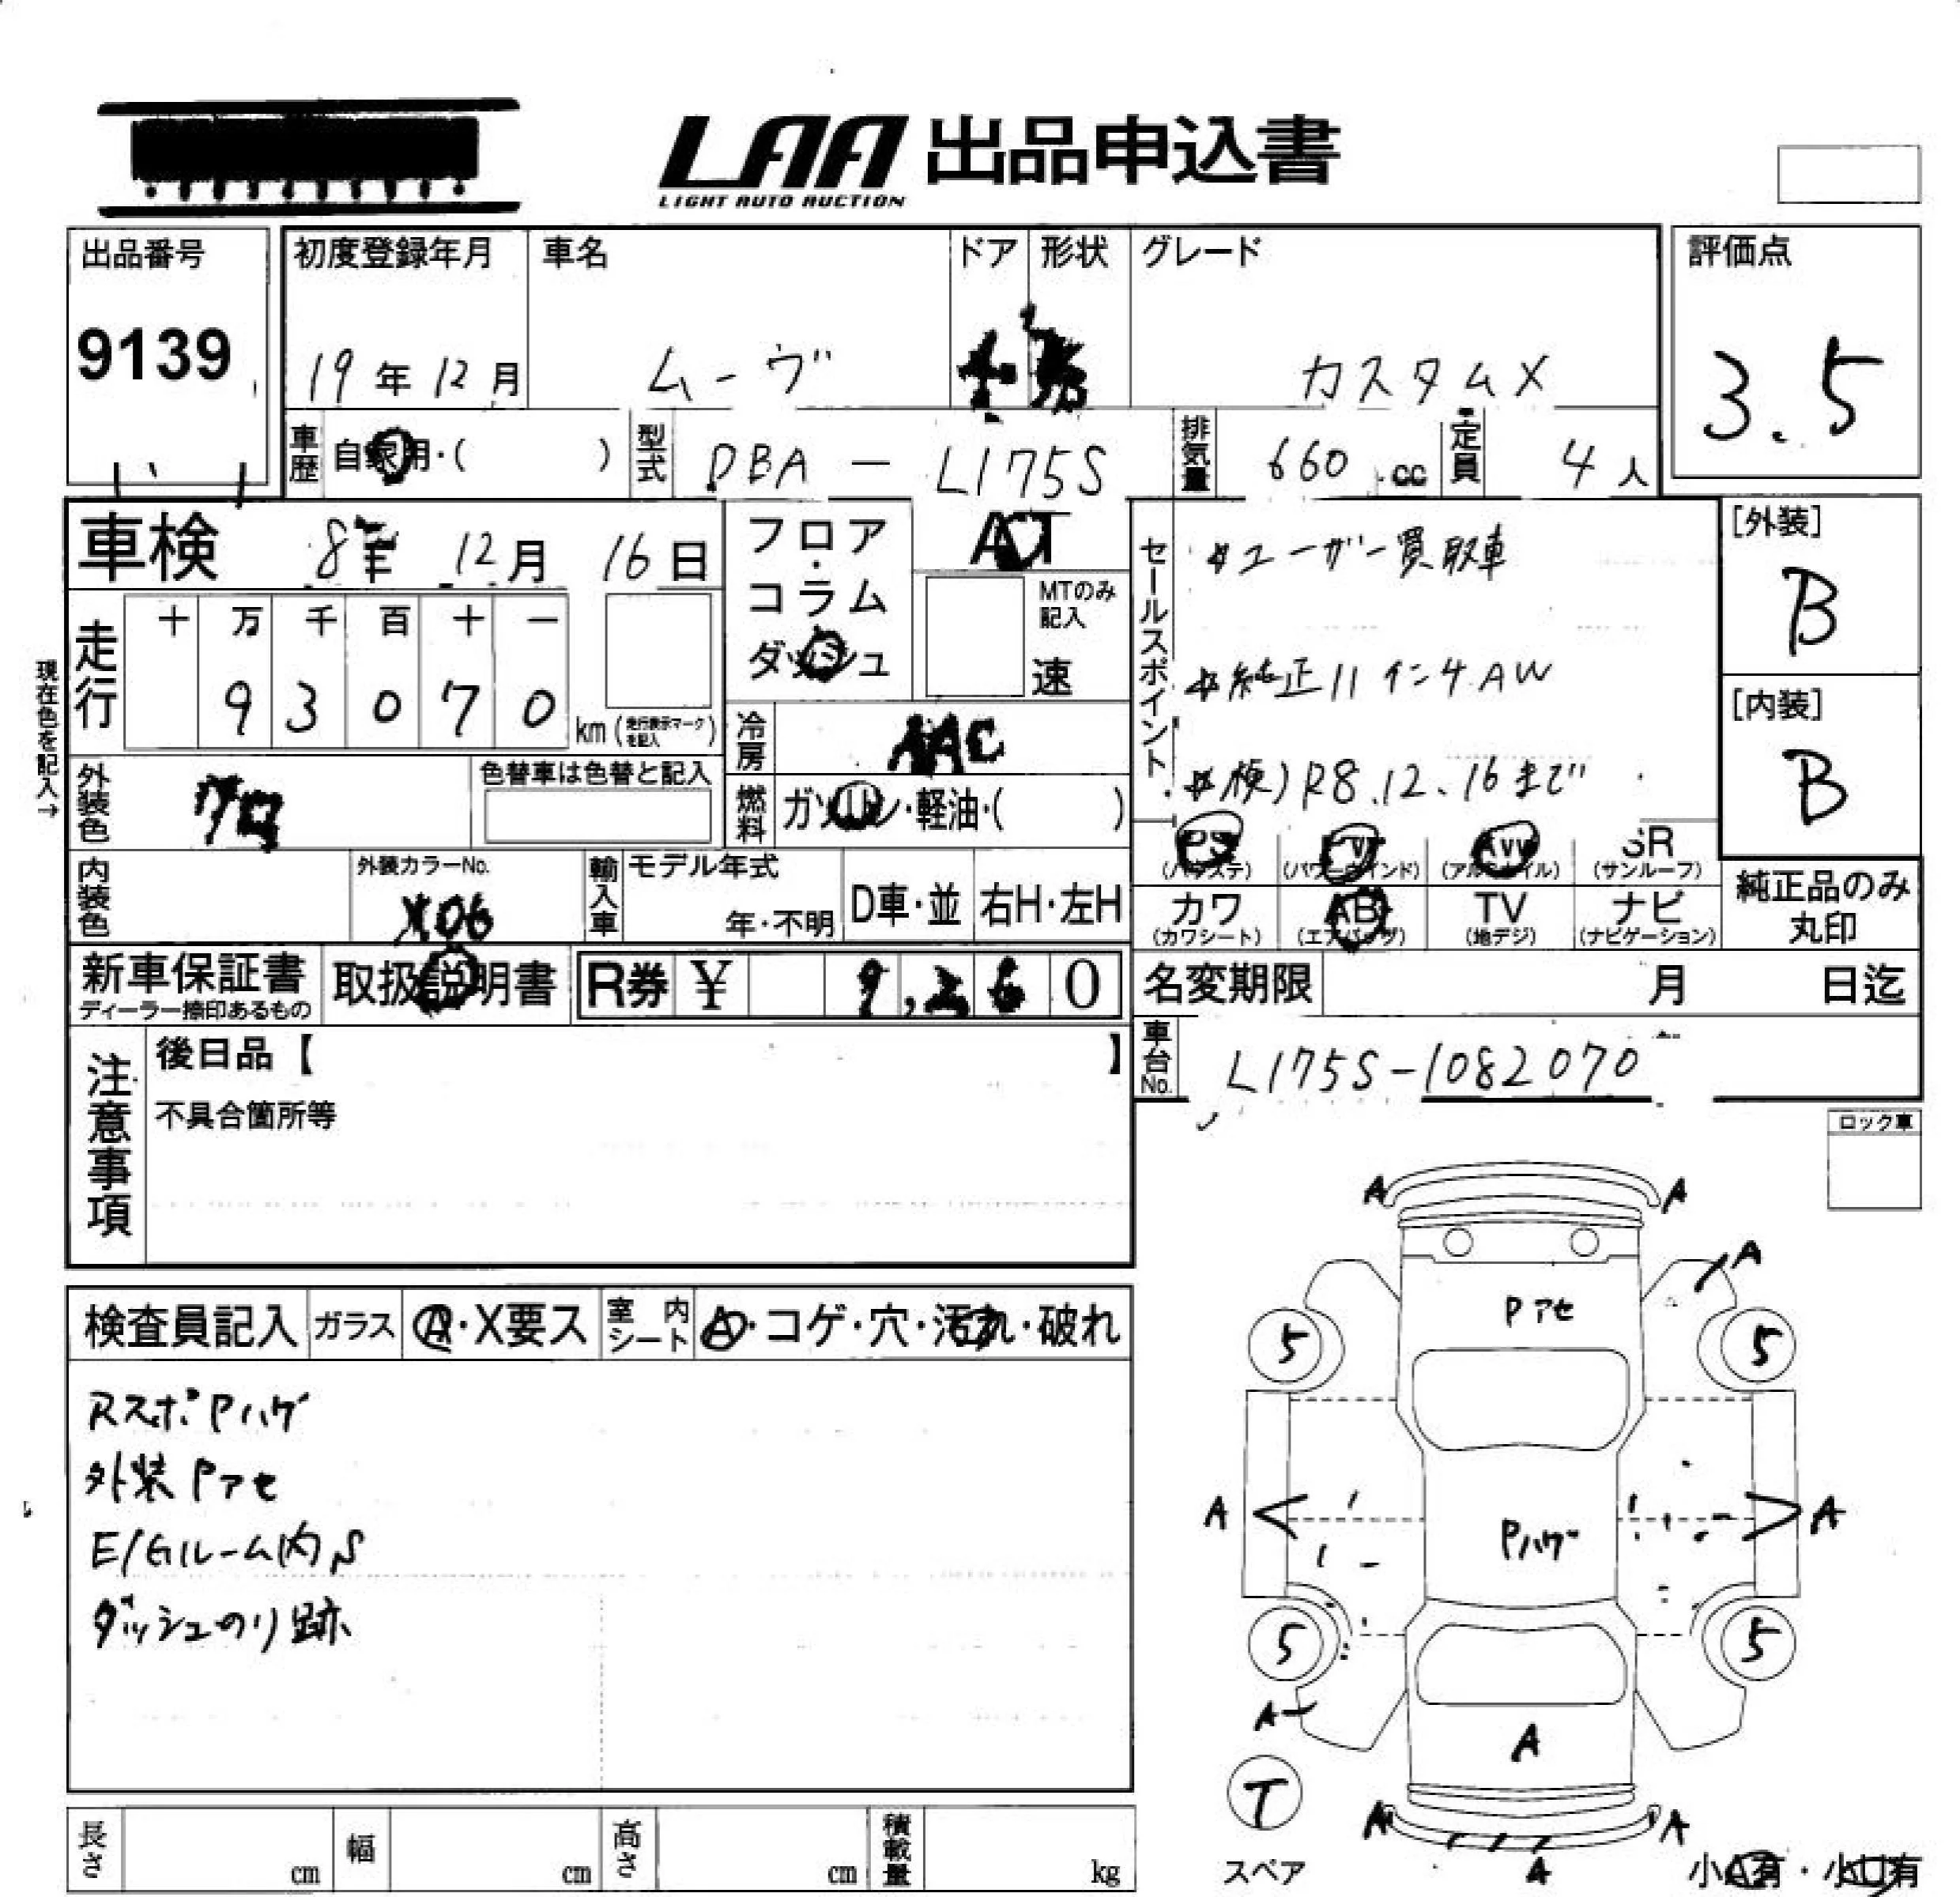 LAA 出品申込書
LIGHT AUTO AUCTION
出品番号
9139
初度登録年月
19年12月
車名
ムーヴ
ドア
形状
グレード
カスタムX
評価点
3.5
車歴
自家用・( )
型式
DBA - L175S
排気量
660 cc
定員
4人
車検
8年 12月 16日
フロア・コラム
ダッシュ
AT
MTのみ記入
速
セールスポイント
ユーザー買取車
純正14インチAW
検)R8.12.16まで
[外装]
B
[内装]
B
現在色を記入→
走行
十 万 千 百 十 一
9 3 0 7 0
km(走行表示マークを記入)
冷房
AAC
外装色
クロ
色替車は色替と記入
燃料
ガソリン・軽油・( )
PS
(パワステ)
PW
(パワーウインド)
AW
(アルミホイル)
SR
(サンルーフ)
内装色
外装カラーNo.
X06
輸入車
モデル年式
年・不明
D車・並
右H・左H
カワ
(カワシート)
AB
(エアバッグ)
TV
(地デジ)
ナビ
(ナビゲーション)
純正品のみ
丸印
新車保証書
ディーラー捺印あるもの
取扱説明書
R券 ¥ 9,260
名変期限
月 日迄
注意事項
後日品【 】
不具合箇所等
車台No.
L175S-1082070
ロック車
検査員記入
ガラス
A・X要ス
室内シート
A・コゲ・穴・汚れ・破れ
RスポPハゲ
外装Pアセ
E/Gルーム内S
ダッシュのり跡
A A
A
Pアセ
5 5
A A
Pハゲ
5 5
A
A
T
A A
A
スペア
小A有・小U有
長さ cm
幅 cm
高さ cm
積載量 kg